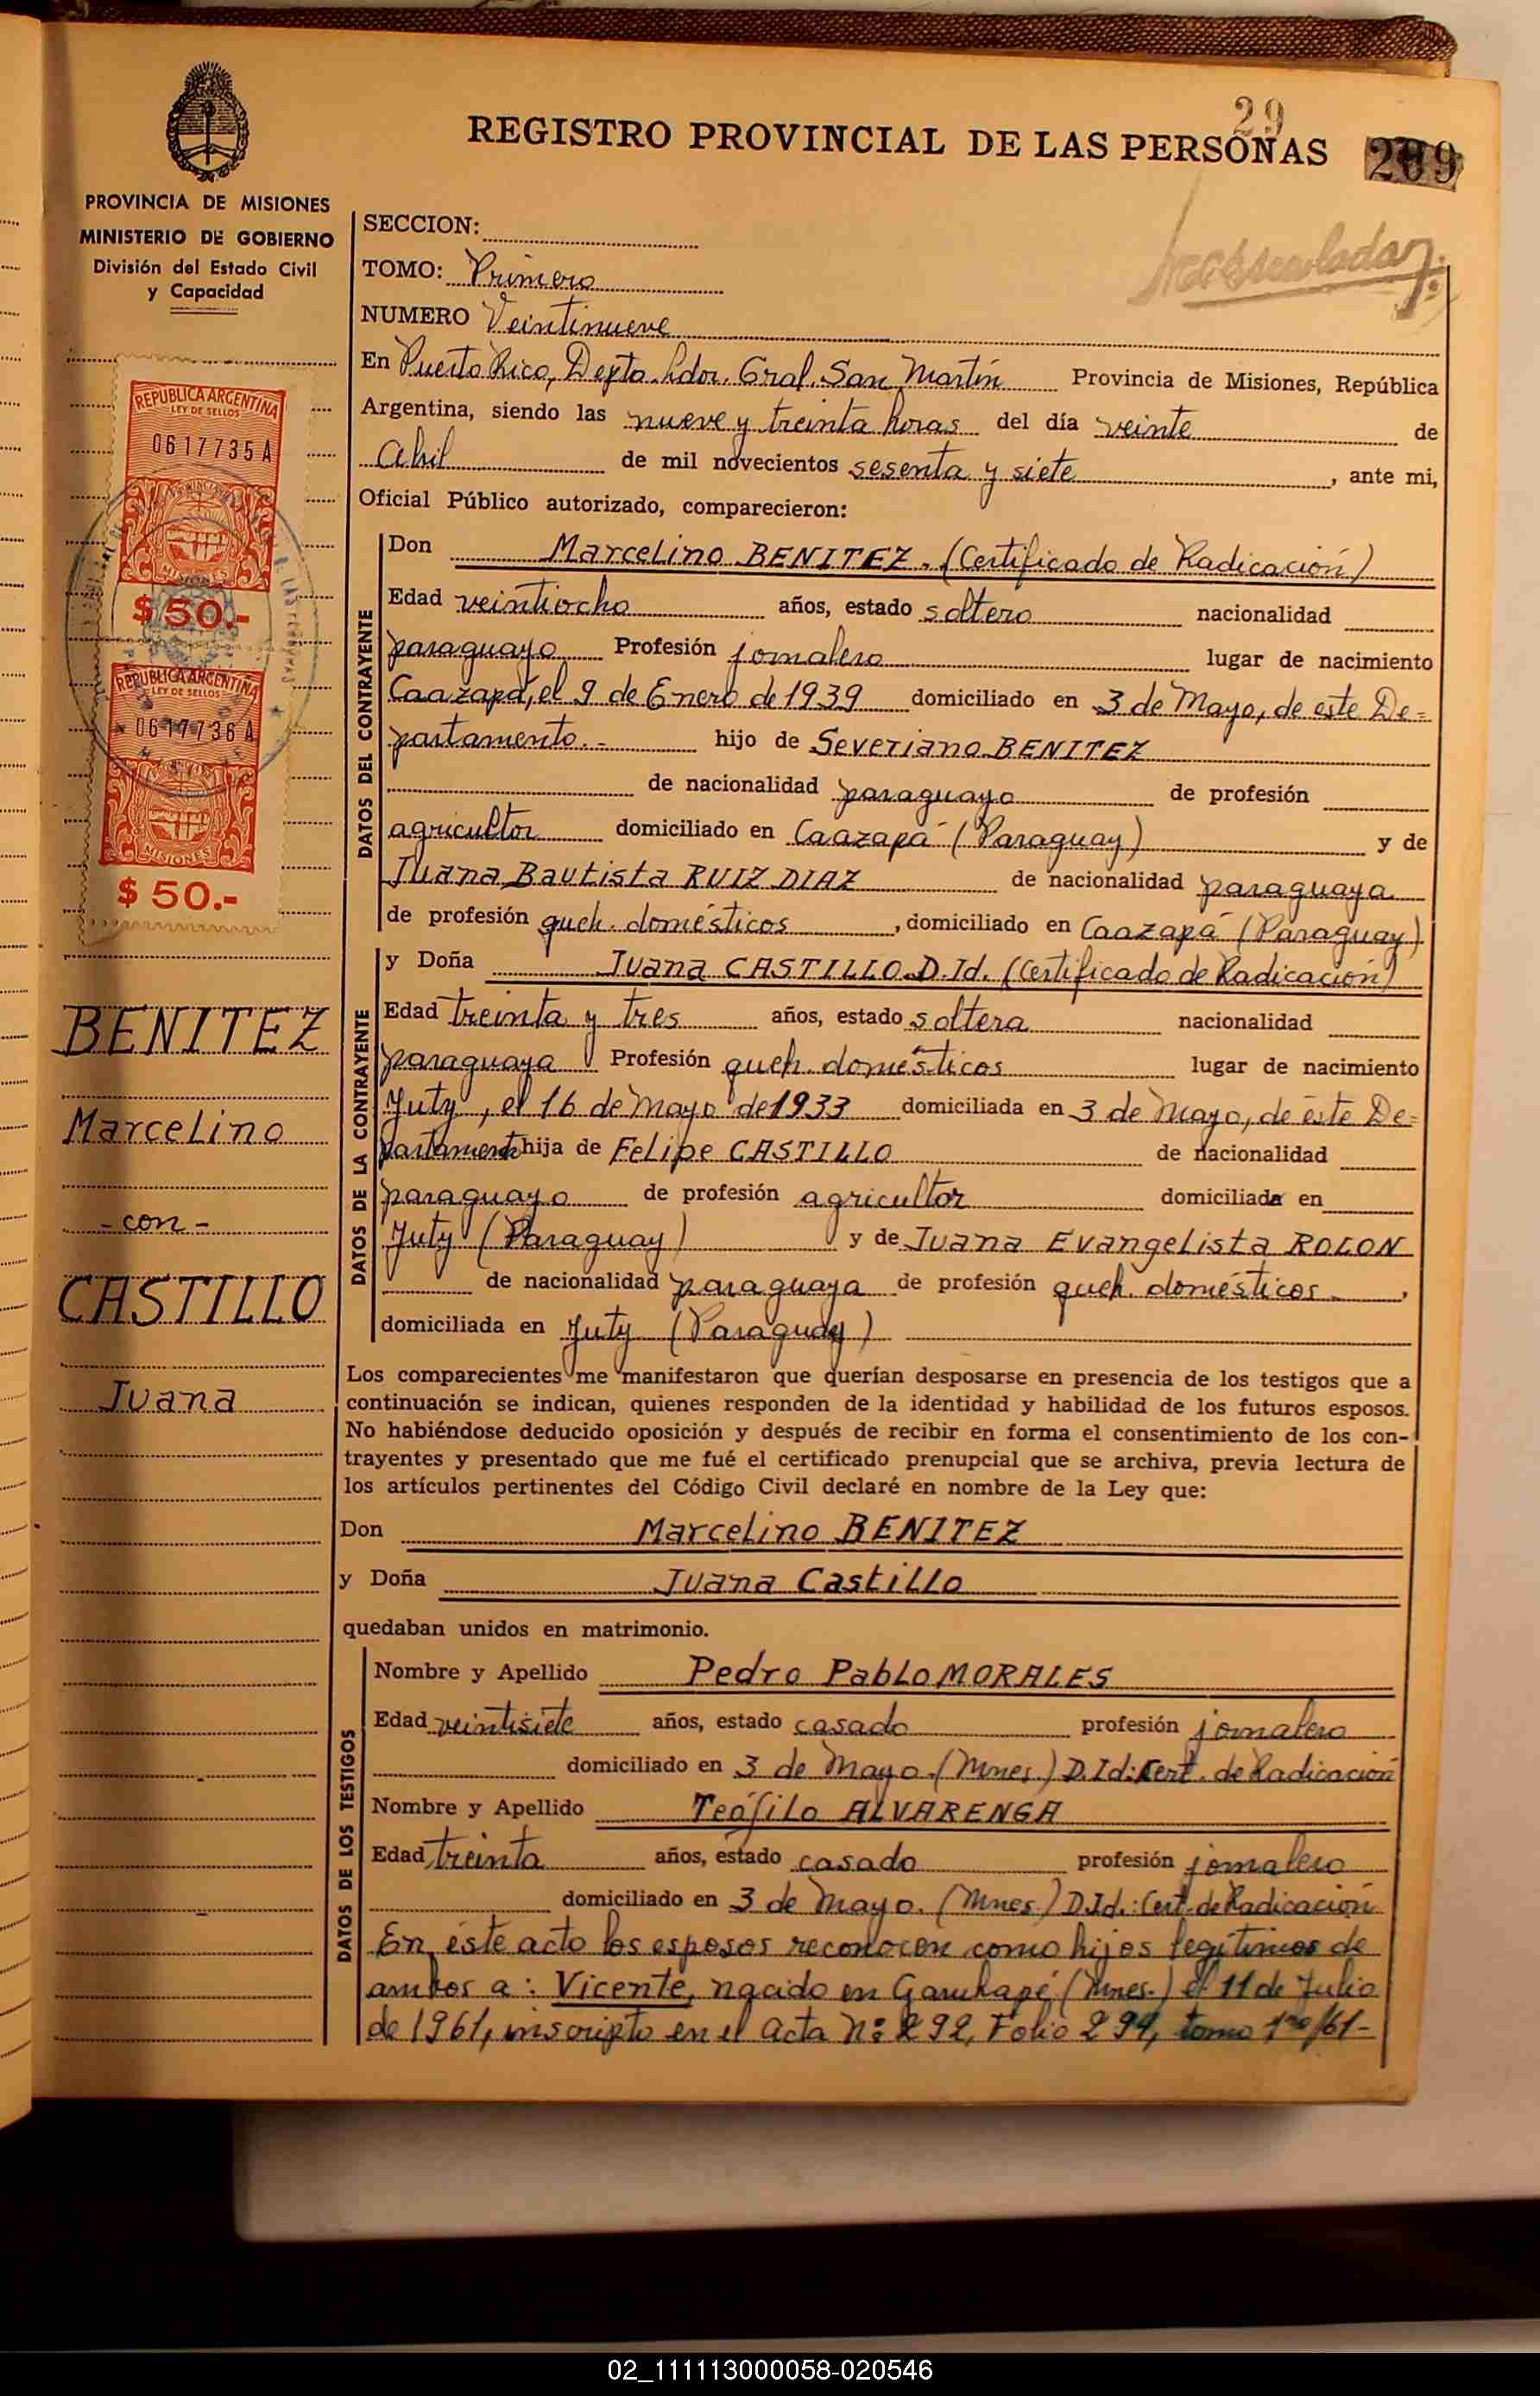 29
REGISTRO PROVINCIAL DE LAS PERSONAS
PROVINCIA DE MISIONES
MINISTERIO DE GOBIERNO
División del Estado Civil
y Capacidad
SECCION:
TOMO: Primero
NUMERO Veintinueve
En Puerto Rico, Depto. Ldor. Gral. San Martín Provincia de Misiones, República
Argentina, siendo las nueve y treinta horas del día veinte de
Abril de mil novecientos sesenta y siete, ante mi,
Oficial Público autorizado, comparecieron:
REPUBLICA ARGENTINA
LEY DE SELLOS
0617735A
MISIONES
$50.-
REPUBLICA ARGENTINA
LEY DE SELLOS
0617736A
MISIONES
$50.-
BENITEZ
Marcelino
- con -
CASTILLO
Juana
DATOS DEL CONTRAYENTE
Don Marcelino BENITEZ. (Certificado de Radicación)
Edad veintiocho años, estado soltero nacionalidad
paraguayo Profesión jornalero lugar de nacimiento
Caazapá, el 9 de Enero de 1939 domiciliado en 3 de Mayo, de este De=
partamento.- hijo de Severiano BENITEZ
de nacionalidad paraguayo de profesión
agricultor domiciliado en Caazapá (Paraguay) y de
Juana Bautista RUIZ DIAZ de nacionalidad paraguaya
de profesión queh. domésticos, domiciliado en Caazapá (Paraguay)
DATOS DE LA CONTRAYENTE
y Doña Juana CASTILLO. D.Id. (Certificado de Radicación)
Edad treinta y tres años, estado soltera nacionalidad
paraguaya Profesión queh. domésticos lugar de nacimiento
Yuty, el 16 de Mayo de 1933 domiciliada en 3 de Mayo, de éste De=
partamento hija de Felipe CASTILLO de nacionalidad
paraguayo de profesión agricultor domiciliada en
Yuty (Paraguay) y de Juana Evangelista ROLON
de nacionalidad paraguaya de profesión queh. domésticos.,
domiciliada en Yuty (Paraguay)
Los comparecientes me manifestaron que querían desposarse en presencia de los testigos que a
continuación se indican, quienes responden de la identidad y habilidad de los futuros esposos.
No habiéndose deducido oposición y después de recibir en forma el consentimiento de los con-
trayentes y presentado que me fué el certificado prenupcial que se archiva, previa lectura de
los artículos pertinentes del Código Civil declaré en nombre de la Ley que:
Don Marcelino BENITEZ
y Doña Juana Castillo
quedaban unidos en matrimonio.
DATOS DE LOS TESTIGOS
Nombre y Apellido Pedro Pablo MORALES
Edad veintisiete años, estado casado profesión jornalero
domiciliado en 3 de Mayo. (Mnes.) D.Id: Cert. de Radicación
Nombre y Apellido Teófilo ALVARENGA
Edad treinta años, estado casado profesión jornalero
domiciliado en 3 de Mayo. (Mnes.) D.Id.: Cert. de Radicación
En éste acto los esposos reconocen como hijos legítimos de
ambos a: Vicente, nacido en Garuhapé (Mnes.) el 11 de Julio
de 1961, inscripto en el acta Nº 292, Folio 294, tomo 1ro/61-
02_111113000058-020546